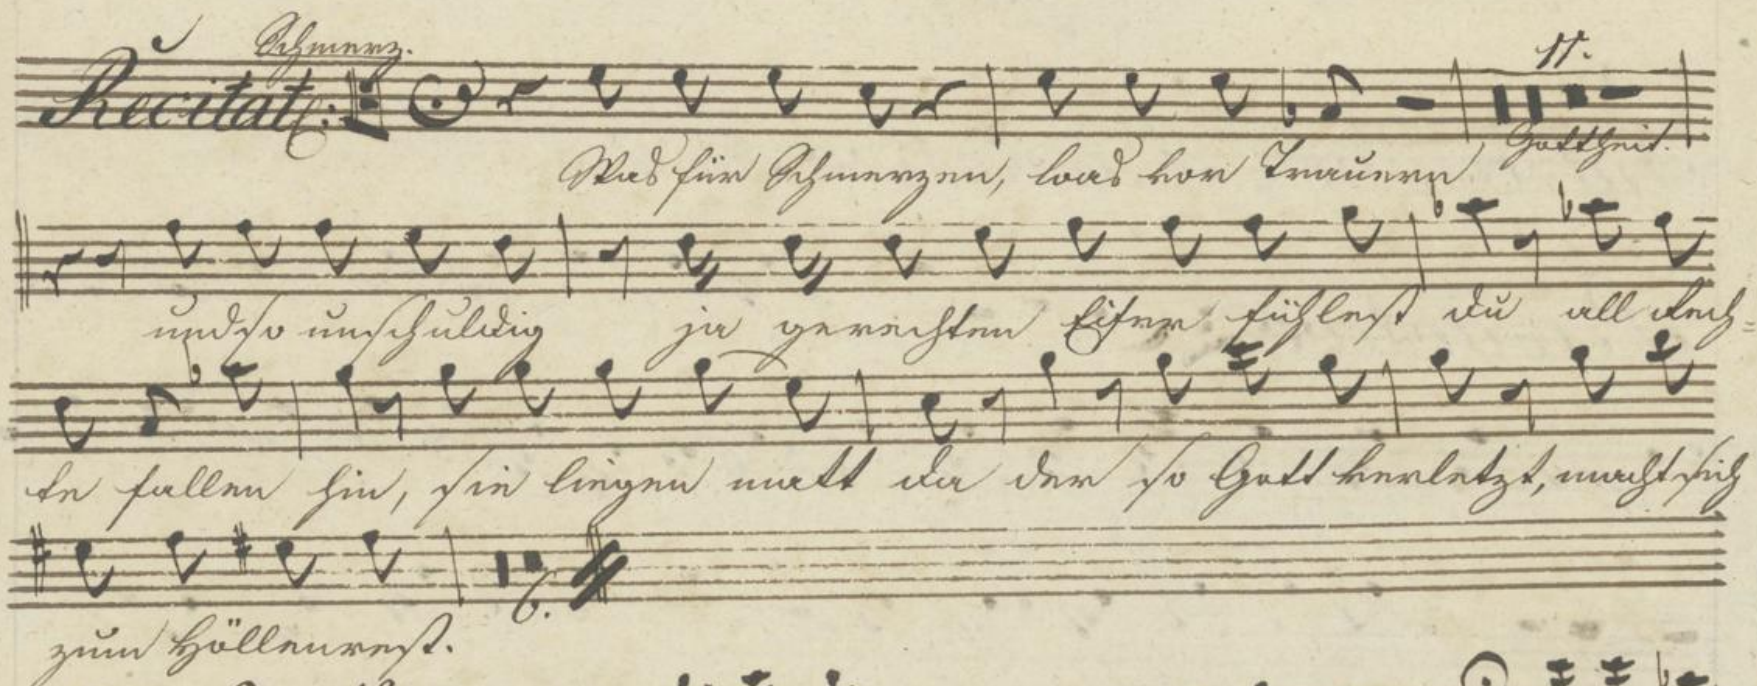 Schmerz.
Recitat:
11.
Was für Schmerzen, was vor Trauern
Gottheit.
und so unschuldig ja gerechten Eifer fühlest du all Rech-
te fallen hin, sie liegen matt da der so Gott verletzt, macht sich
6.
zum Höllenrest.